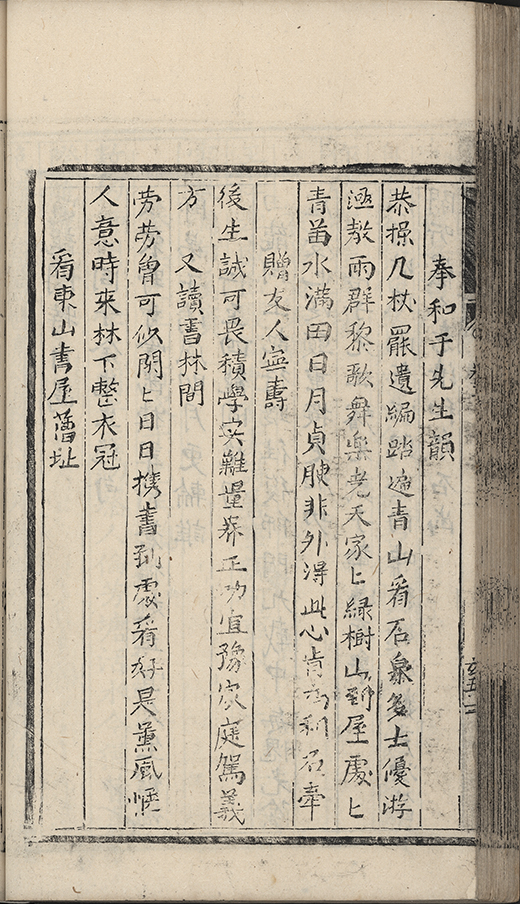 奉和于先生韻
恭操几杖罷遺編踏遍青山看石泉多士優游
極教雨群黎歌舞樂堯天家〻綠樹山到屋處〻
青苗水滿田日月貞腴非外得此心肯為利名牽
贈友人宓壽
後生誠可畏積學安難量養正功宜豫家庭駕義
方 又讀書林間
勞勞曾可似閒〻日日携書到處看好是薰風愜
人意時來林下整衣冠
看東山書屋舊址